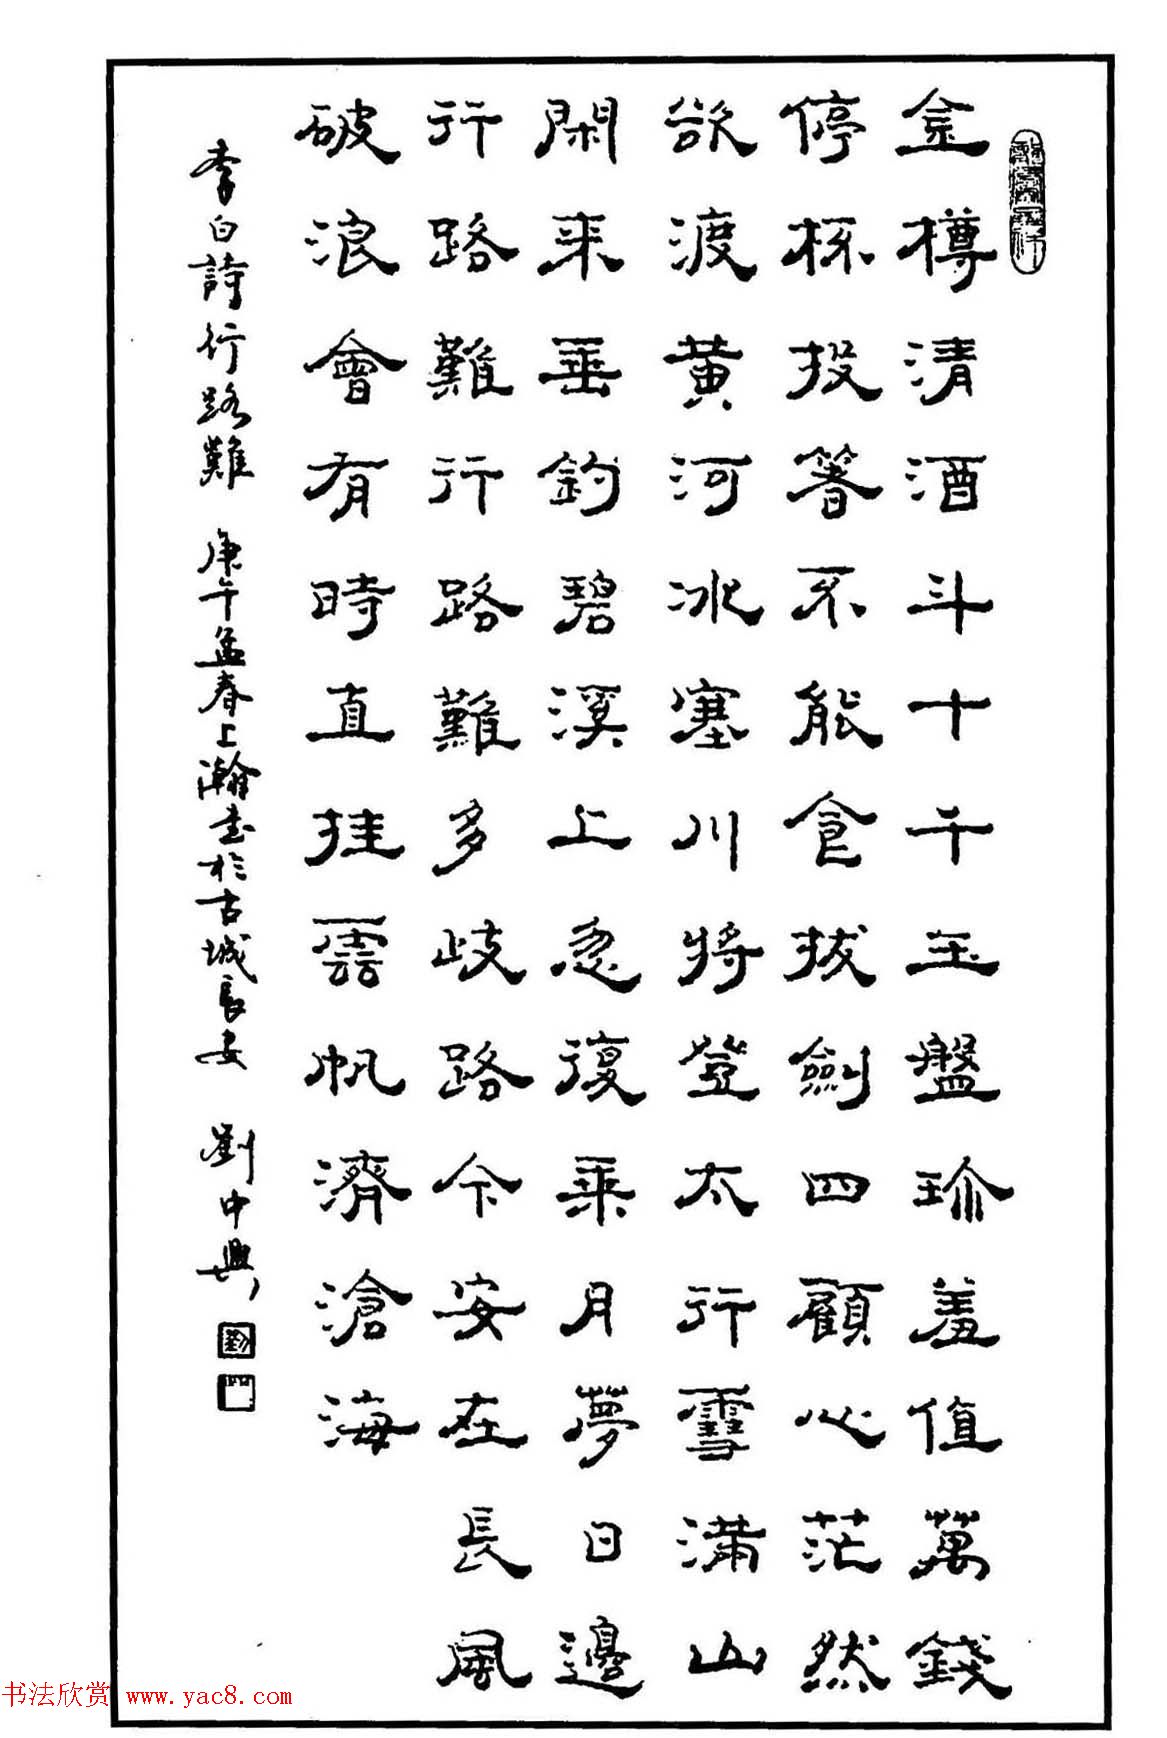 金樽清酒斗十千玉盤珍羞值萬錢
停杯投箸不能食拔劍四顧心茫然
欲渡黃河冰塞川將登太行雪滿山
閑来垂釣碧溪上忽復乘月夢日邊
行路難行路難多歧路今安在長風
破浪會有時直挂雲帆濟滄海
李白詩行路難 庚午孟春上瀚書於古城長安 劉中興
书法欣赏 www.yac8.com